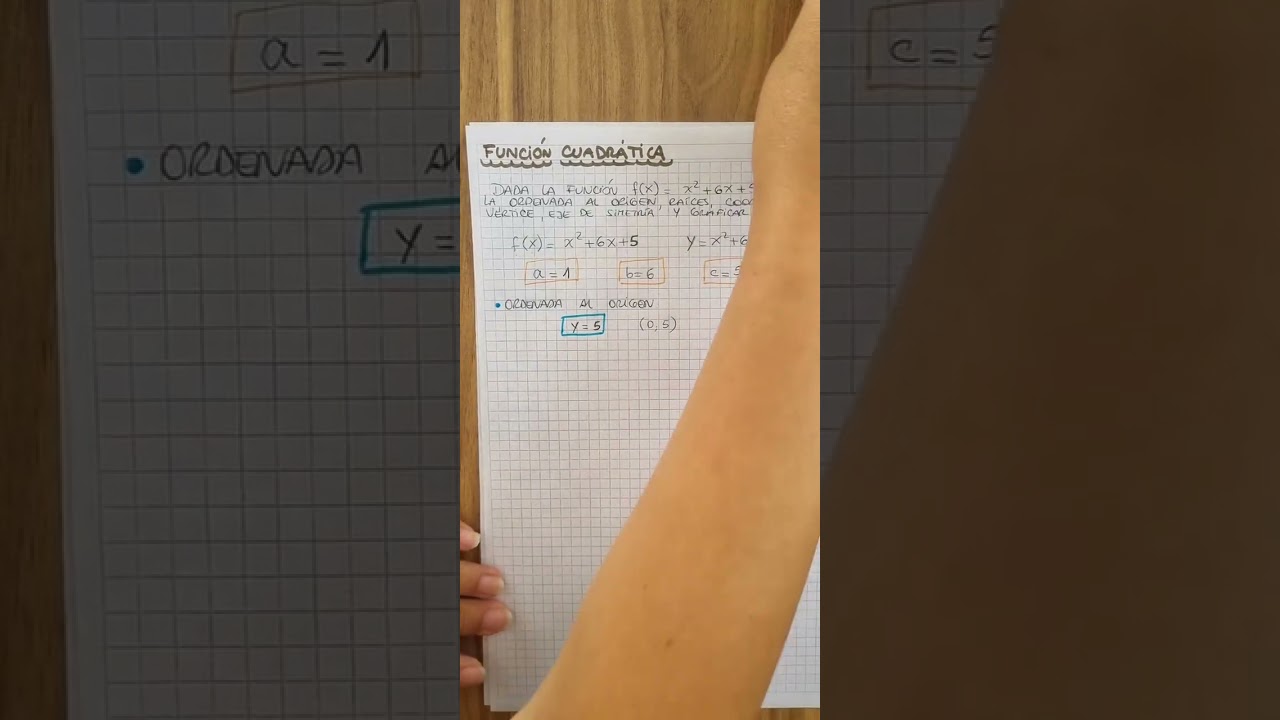 FUNCIÓN CUADRÁTICA
DADA LA FUNCIÓN f(x) = x² + 6x + 5
LA ORDENADA AL ORIGEN, RAÍCES,
VÉRTICE, EJE DE SIMETRÍA Y GRAFICAR
f(x) = x² + 6x + 5 y = x² + 6
a = 1 b = 6 c = 5
• ORDENADA AL ORIGEN
y = 5 (0, 5)
a = 1 c = 5
• ORDENADA AL
y =